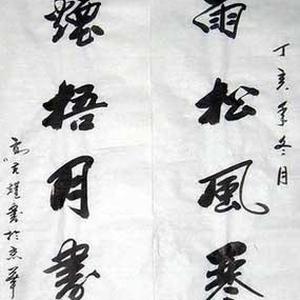 丁亥年冬月
雨松風琴
煙梧月書
書於京華